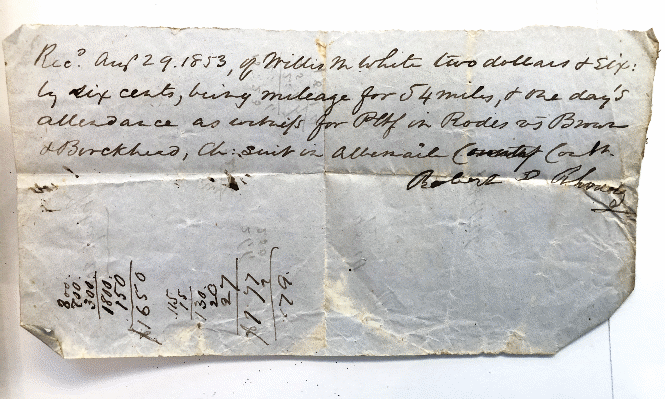 Recd. Aug 29. 1853, of Willis M White two dollars & Six:
ty six cents, being mileage for 54 miles, & one day's
attendance as witness for Plf in Rodes vs Brown
& Burckhead, Ch: suit in Albemarle County Court.
Robert P. Rhodes
800.
700.
300.
1800.
150
$1650
115
15
130.
20
27
$1 77
2
.79.